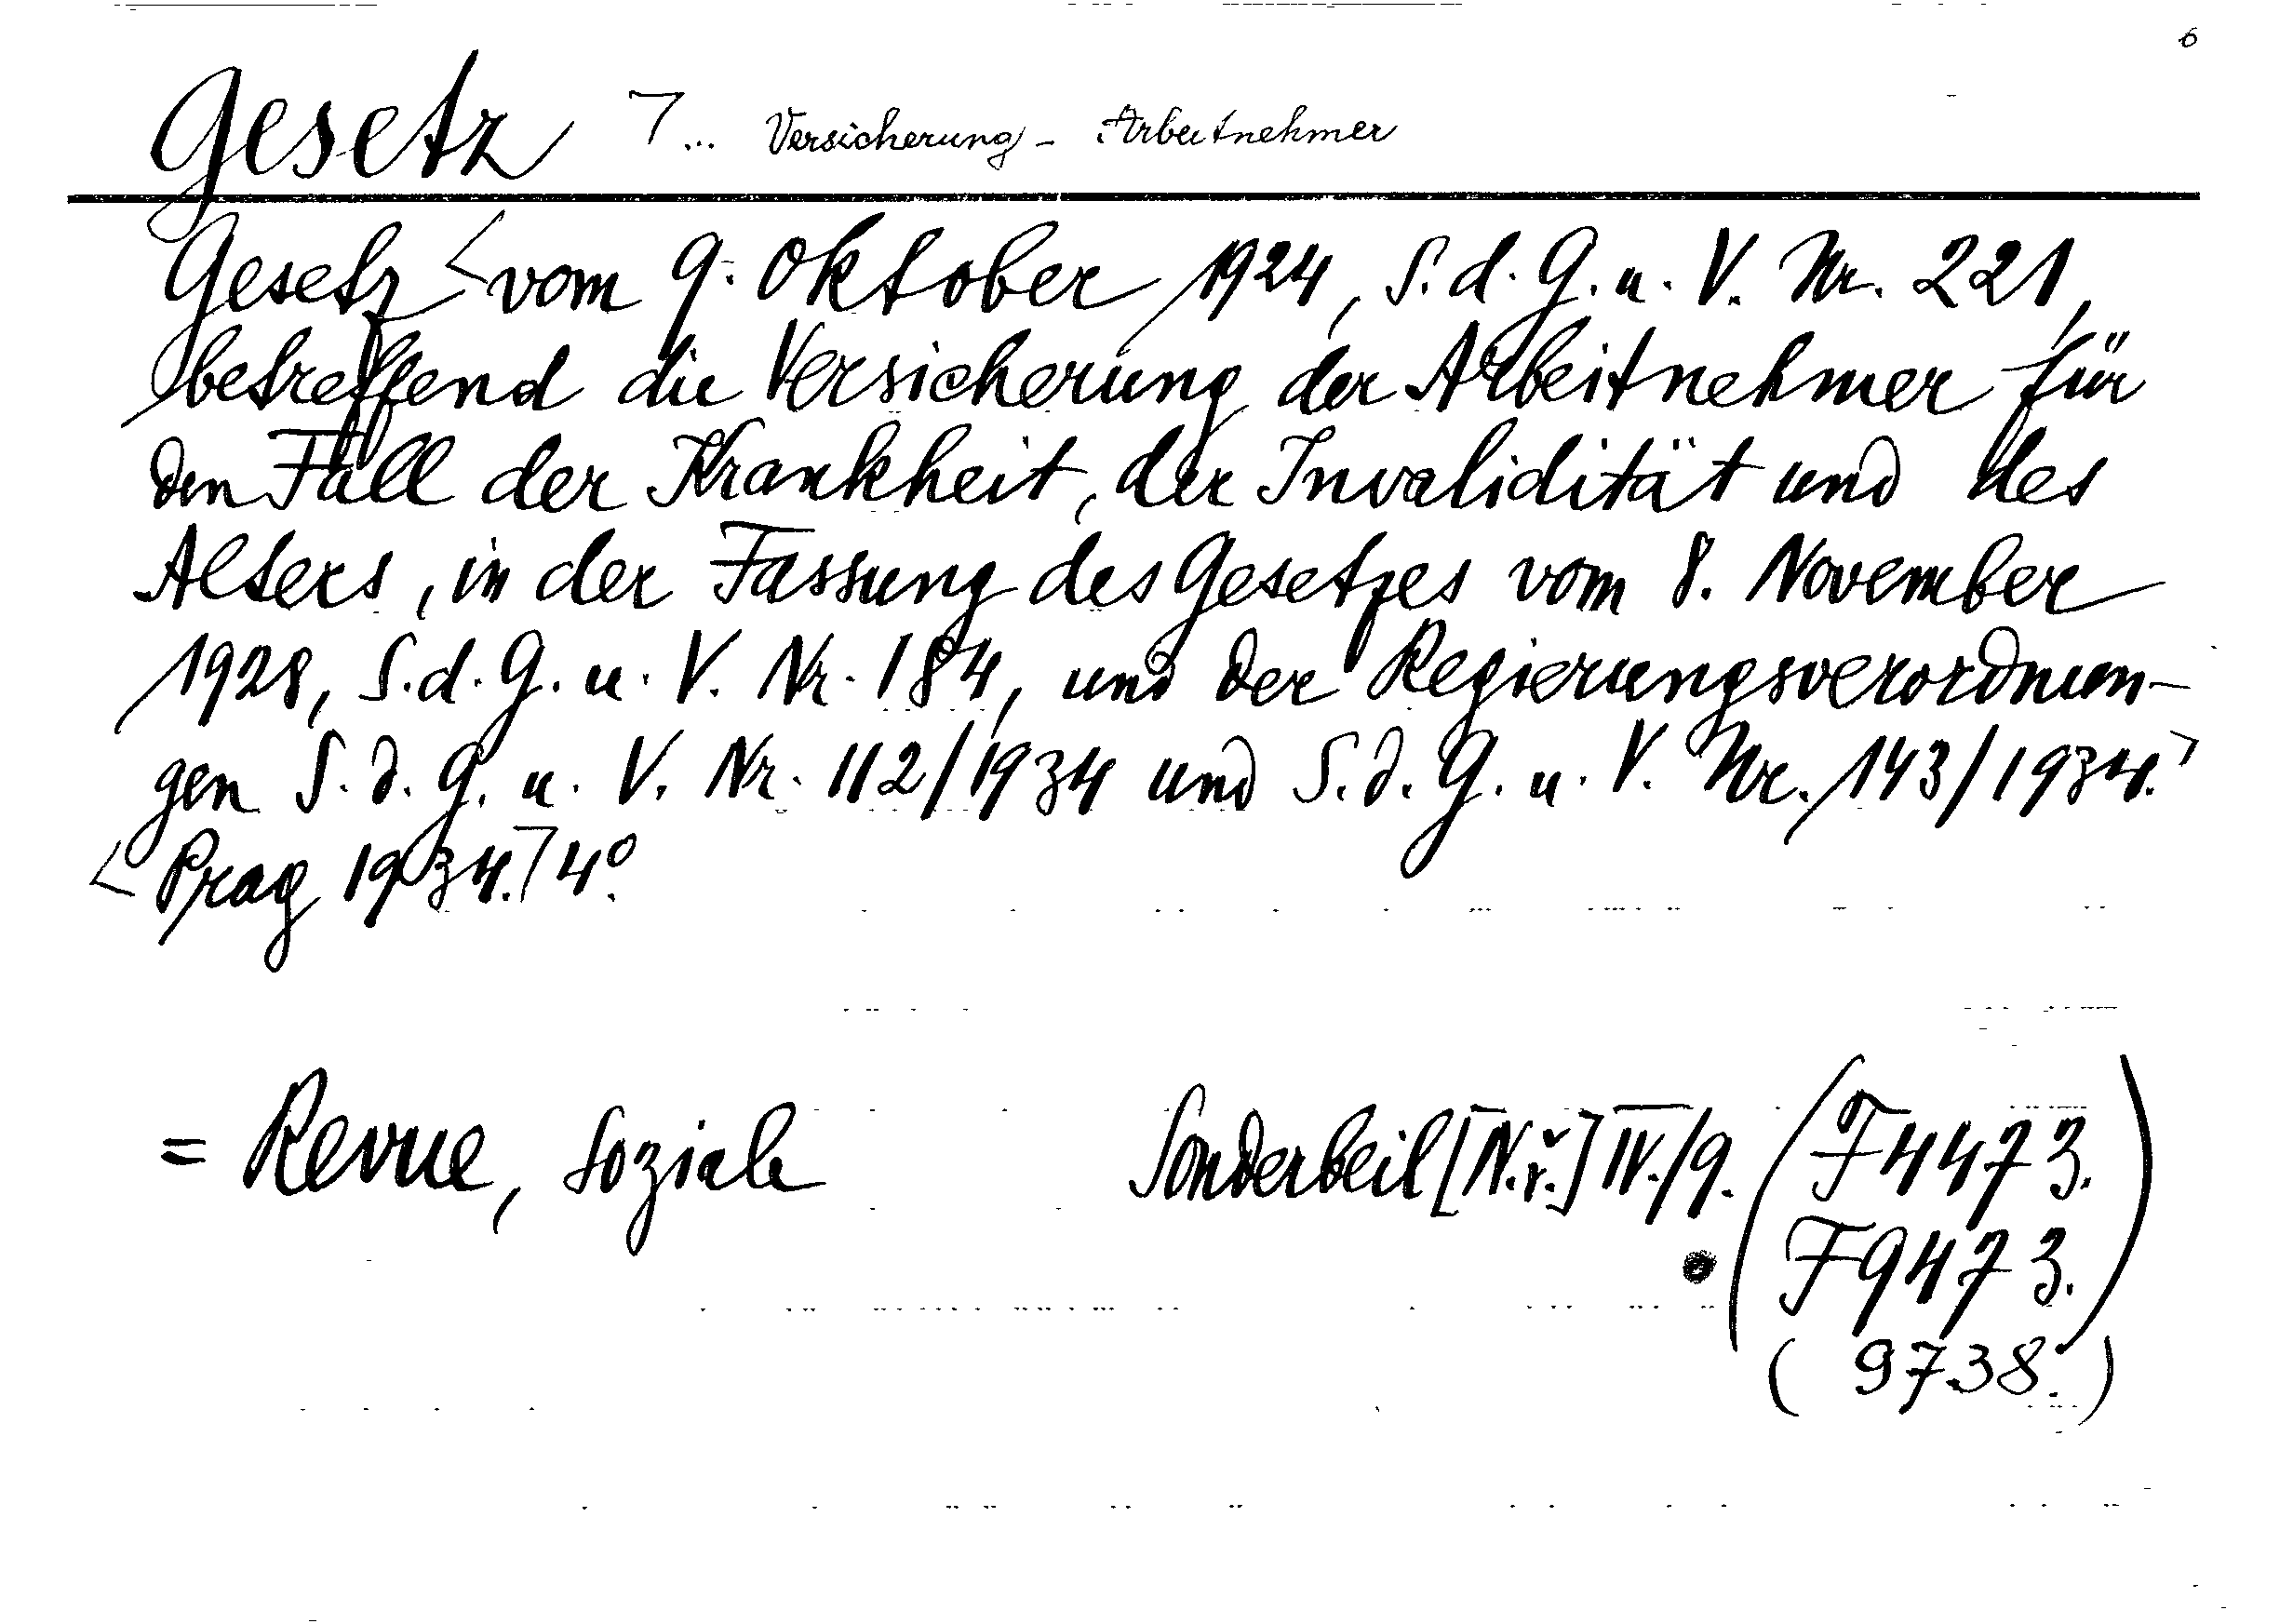 6
Gesetz ⏋... Versicherung - Arbeitnehmer
Gesetz <vom 9. Oktober 1924, S. d. G. u. V. Nr. 221,
betreffend die Versicherung der Arbeitnehmer für
den Fall der Krankheit, der Invalidität und des
Alters, in der Fassung des Gesetzes vom 8. November
1928, S. d. G. u. V. Nr. 184, und der Regierungsverordnun-
gen S. d. G. u. V. Nr. 112/1934 und S. d. G. u. V. Nr. 143/1934.>
<Prag 1934.⏋ 4º.
= Revue, soziale Sonderbeil [N.ř.] IV./9. (F4473.
F9473.)
( 9738.)